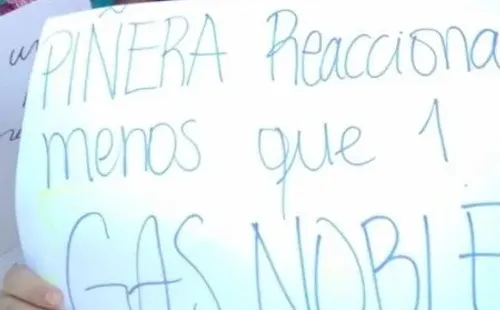 PIÑERA Reacciona
menos que 1
GAS NOBLE